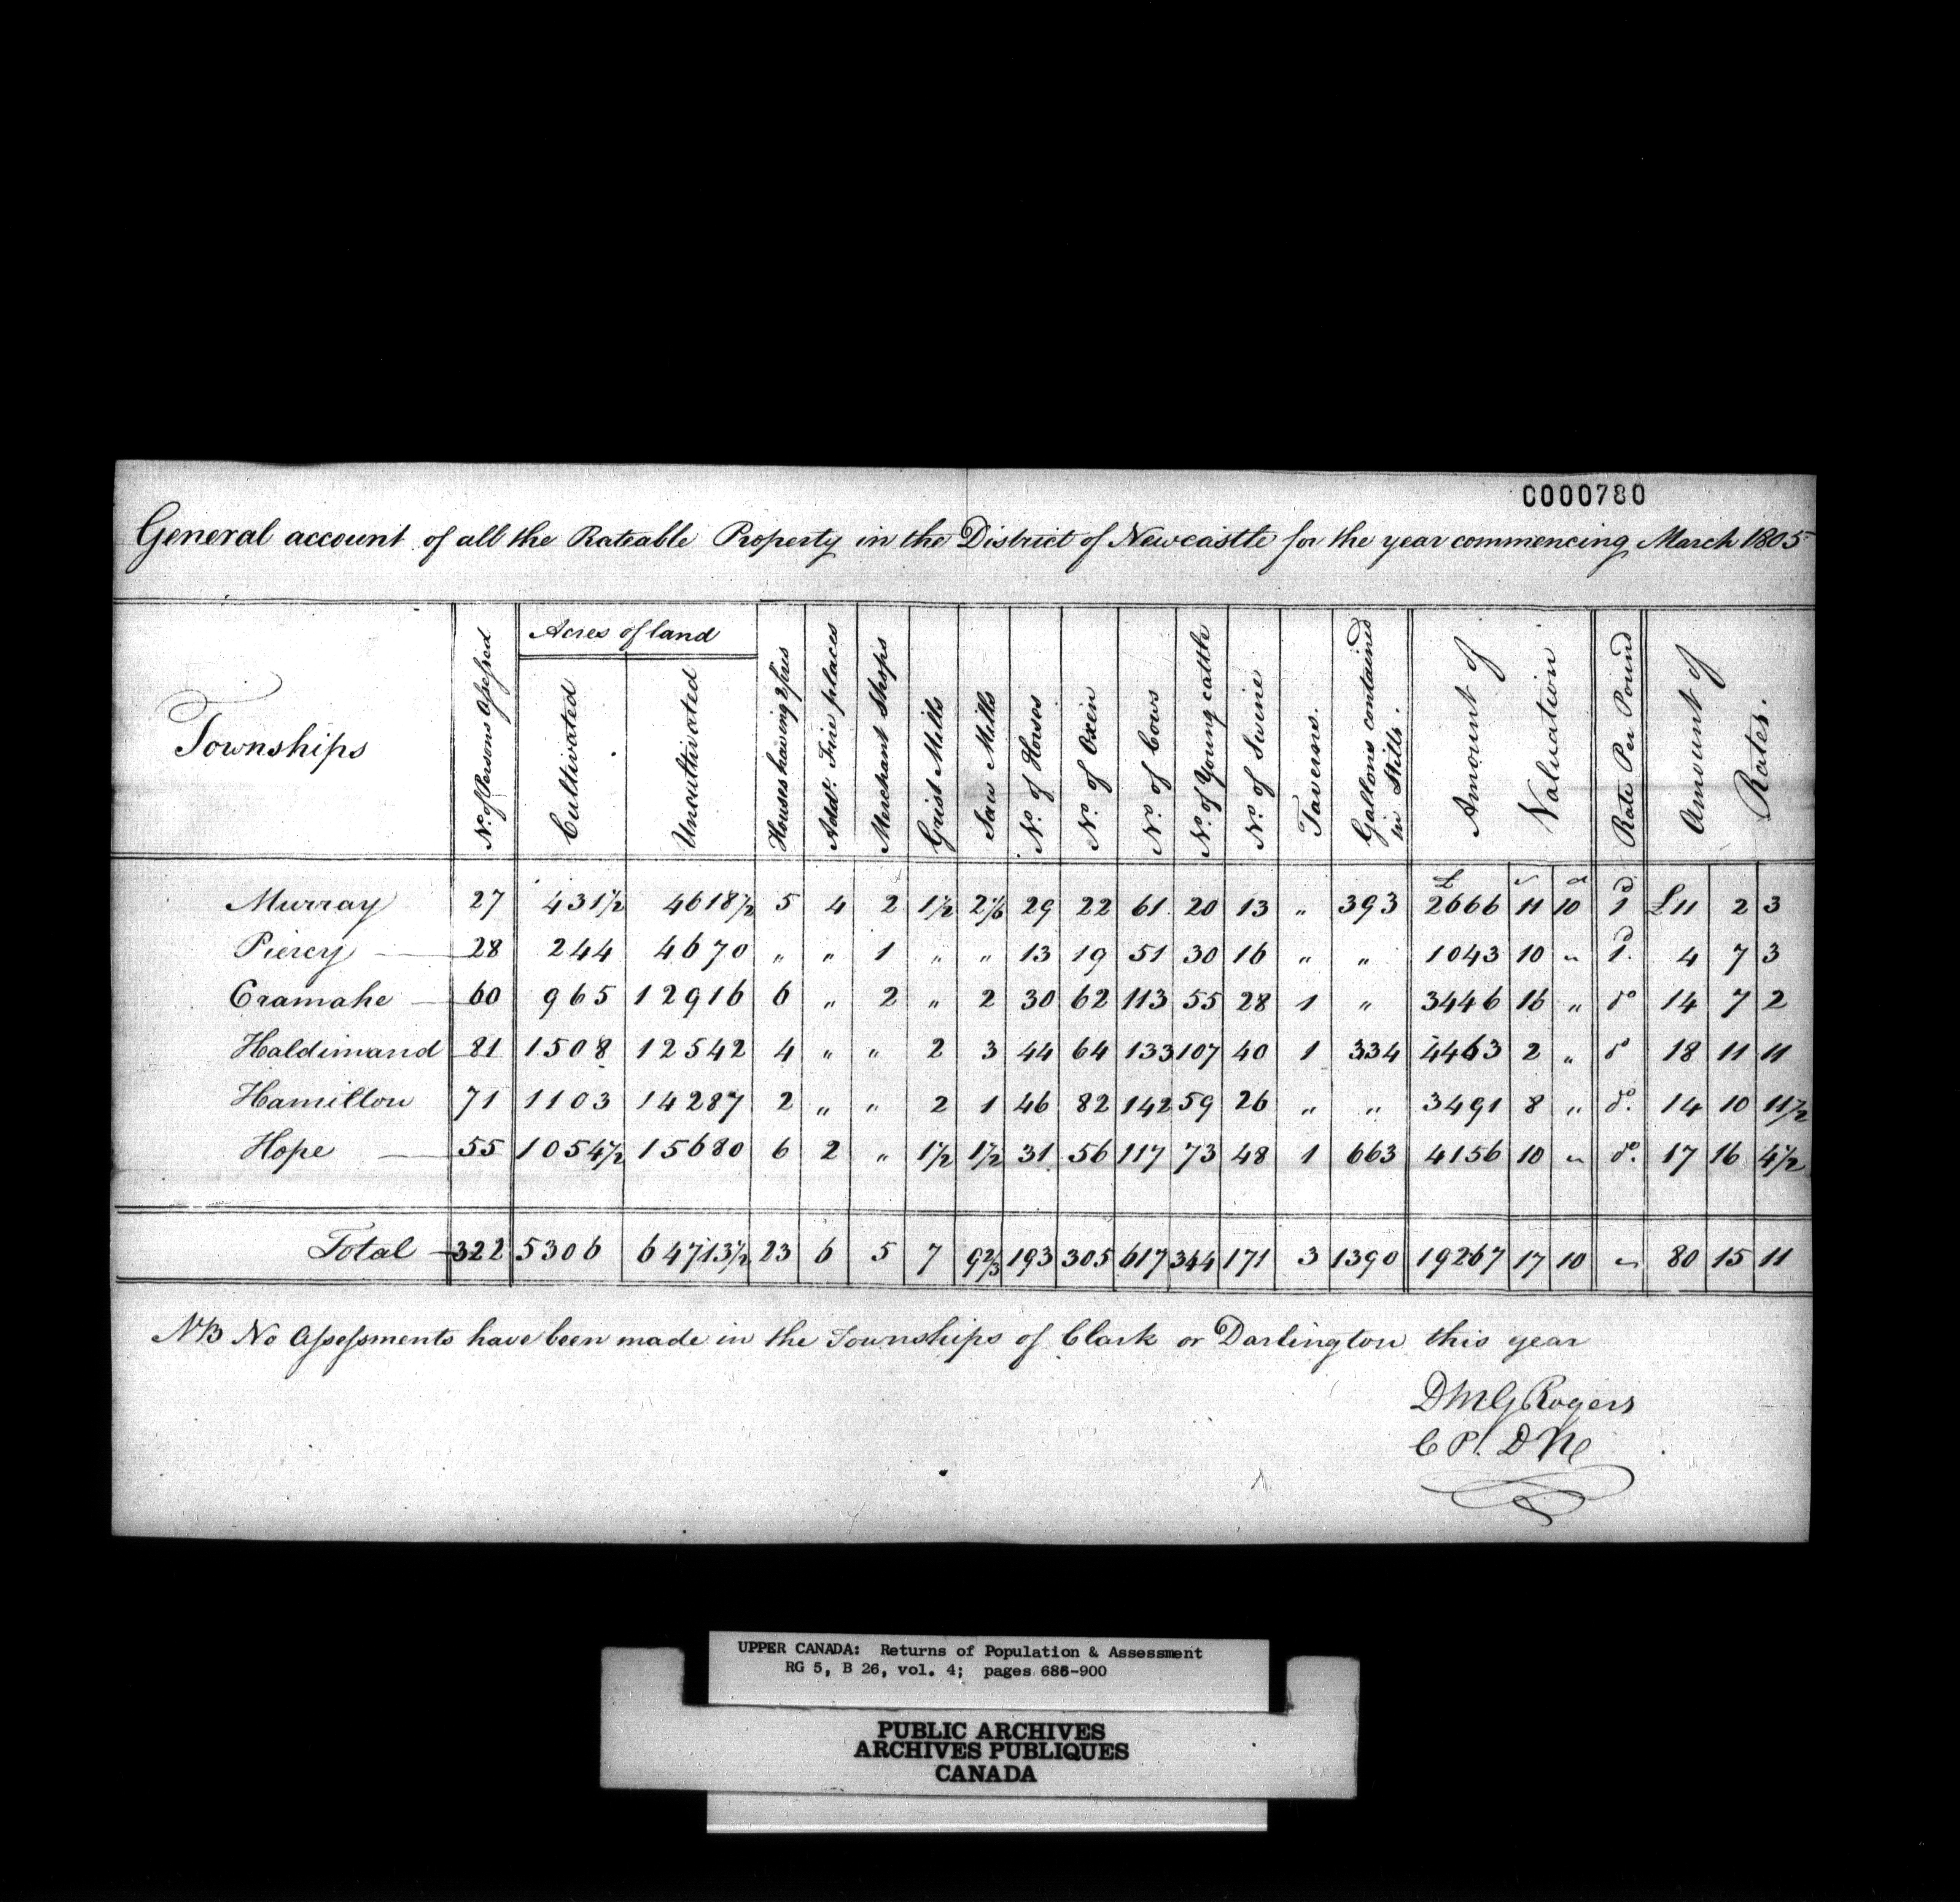 C000780
General account of all the Rateable Property in the District of Newcastle for the year commencing March 1805
Townships | No. of Persons Assessed | Acres of land | Cultivated | Uncultivated | Houses having 2 fires | Addl. Fire places | Merchant Shops | Grist Mills | Saw Mills | No. of Horses | No. of Oxen | No. of Cows | No. of Young cattle | No. of Swine | Taverns. | Gallons contained in Stills. | Amount of Valuation | Rate Per Pound | Amount of Rates.
Murray 27 431½ 4618½ 5 4 2 1½ 2⅙ 29 22 61 20 13 " 393 £ 2666 s 11 d 10 1d £11 2 3
Piercy 28 244 4670 " " 1 " " 13 19 51 30 16 " " 1043 10 " 1d. 4 7 3
Cramahe 60 965 12916 6 " 2 " 2 30 62 113 55 28 1 " 3446 16 " do 14 7 2
Haldimand 81 1508 12542 4 " " 2 3 44 64 133 107 40 1 334 4463 2 " do 18 11 11
Hamilton 71 1103 14287 2 " " 2 1 46 82 142 59 26 " " 3491 8 " do. 14 10 11½
Hope 55 1054½ 15680 6 2 " 1½ 1½ 31 56 117 73 48 1 663 4156 10 " do. 17 16 4½
Total 322 5306 64713½ 23 6 5 7 9⅔ 193 305 617 344 171 3 1390 19267 17 10 " 80 15 11
NB No Assessments have been made in the Townships of Clark or Darlington this year
D McG Rogers
C P. D N
UPPER CANADA: Returns of Population & Assessment
RG 5, B 26, vol. 4; pages 686-900
PUBLIC ARCHIVES
ARCHIVES PUBLIQUES
CANADA